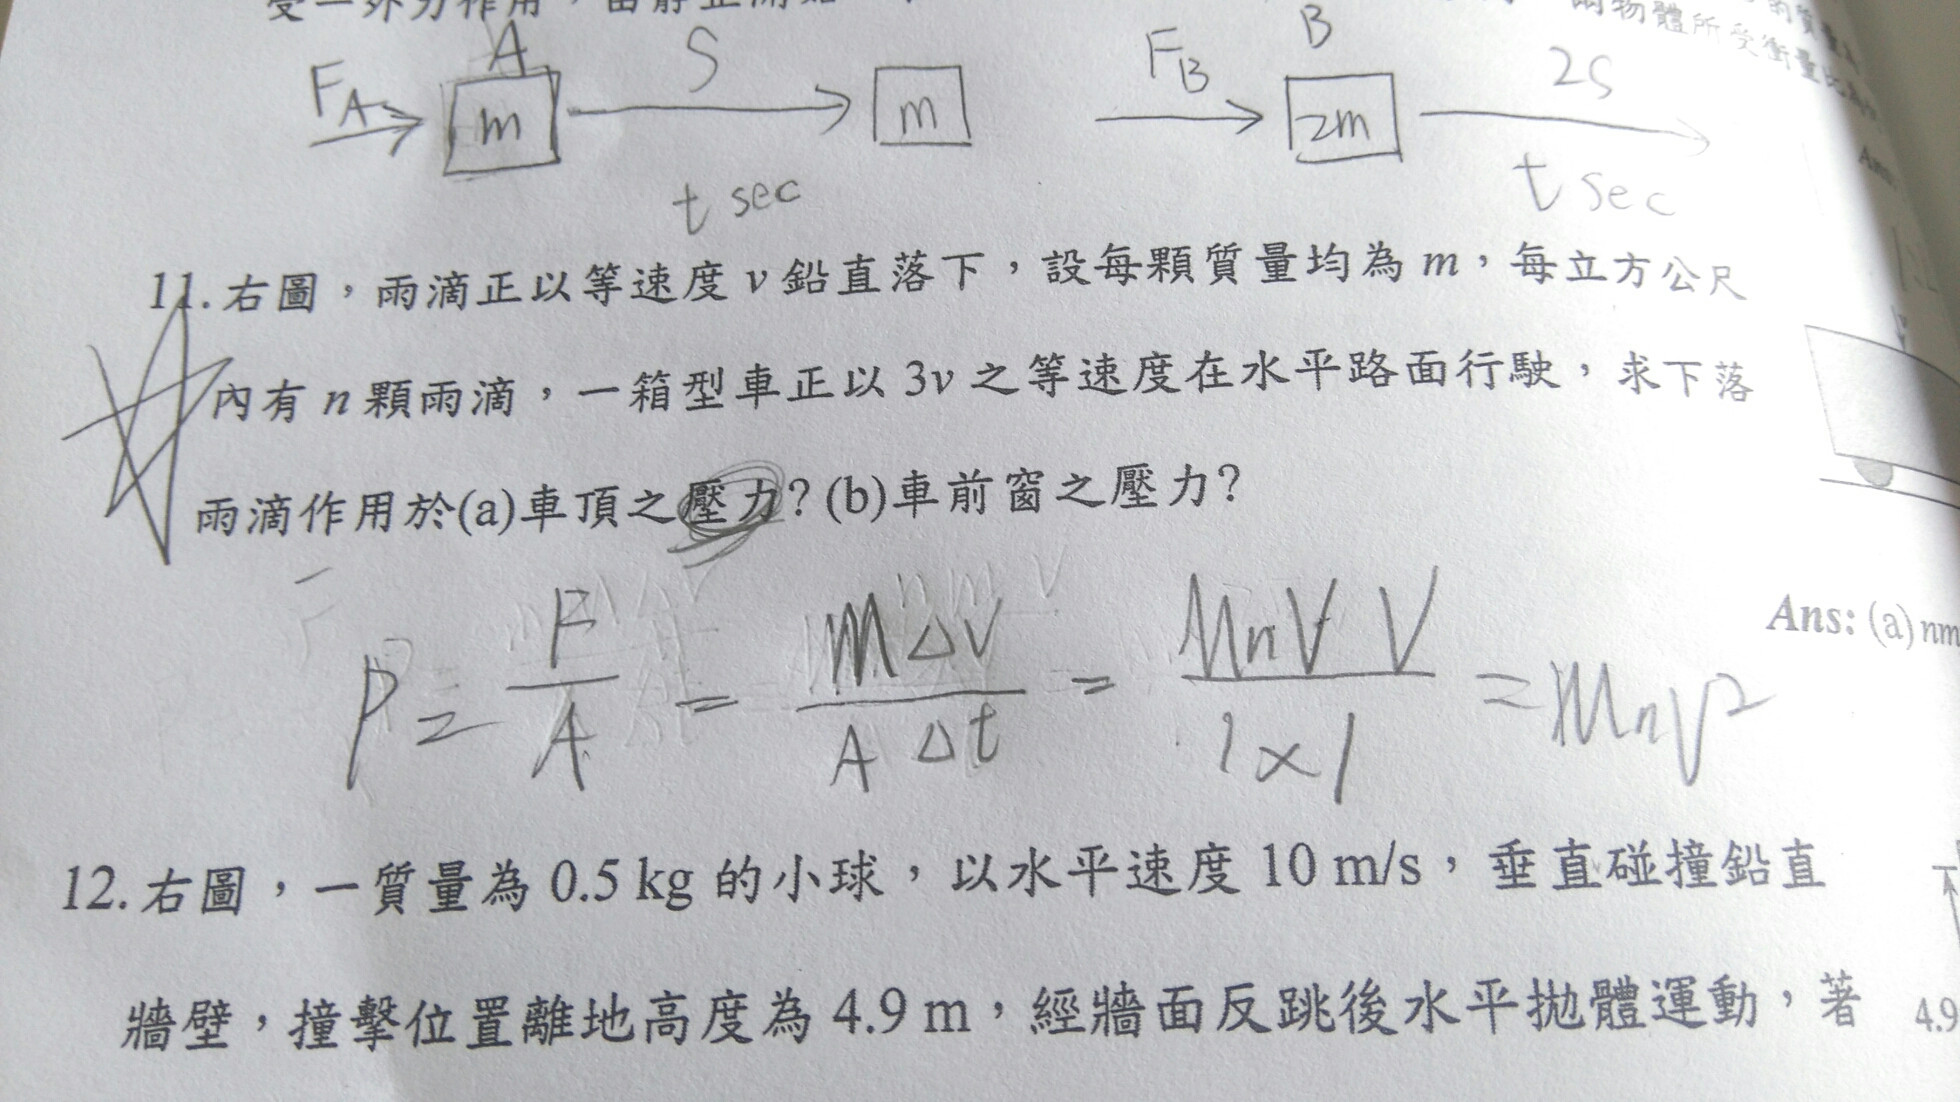 A S B
F_A m m F_B 2m 2S
t sec t sec
11. 右圖,雨滴正以等速度 v 鉛直落下,設每顆質量均為 m,每立方公尺
內有 n 顆雨滴,一箱型車正以 3v 之等速度在水平路面行駛,求下落
雨滴作用於(a)車頂之壓力? (b)車前窗之壓力?
Ans: (a) nm
P = F/A = mΔv/AΔt = mnVV/1×1 = mnv²
12. 右圖,一質量為 0.5 kg 的小球,以水平速度 10 m/s,垂直碰撞鉛直
牆壁,撞擊位置離地高度為 4.9 m,經牆面反跳後水平拋體運動,著
4.9